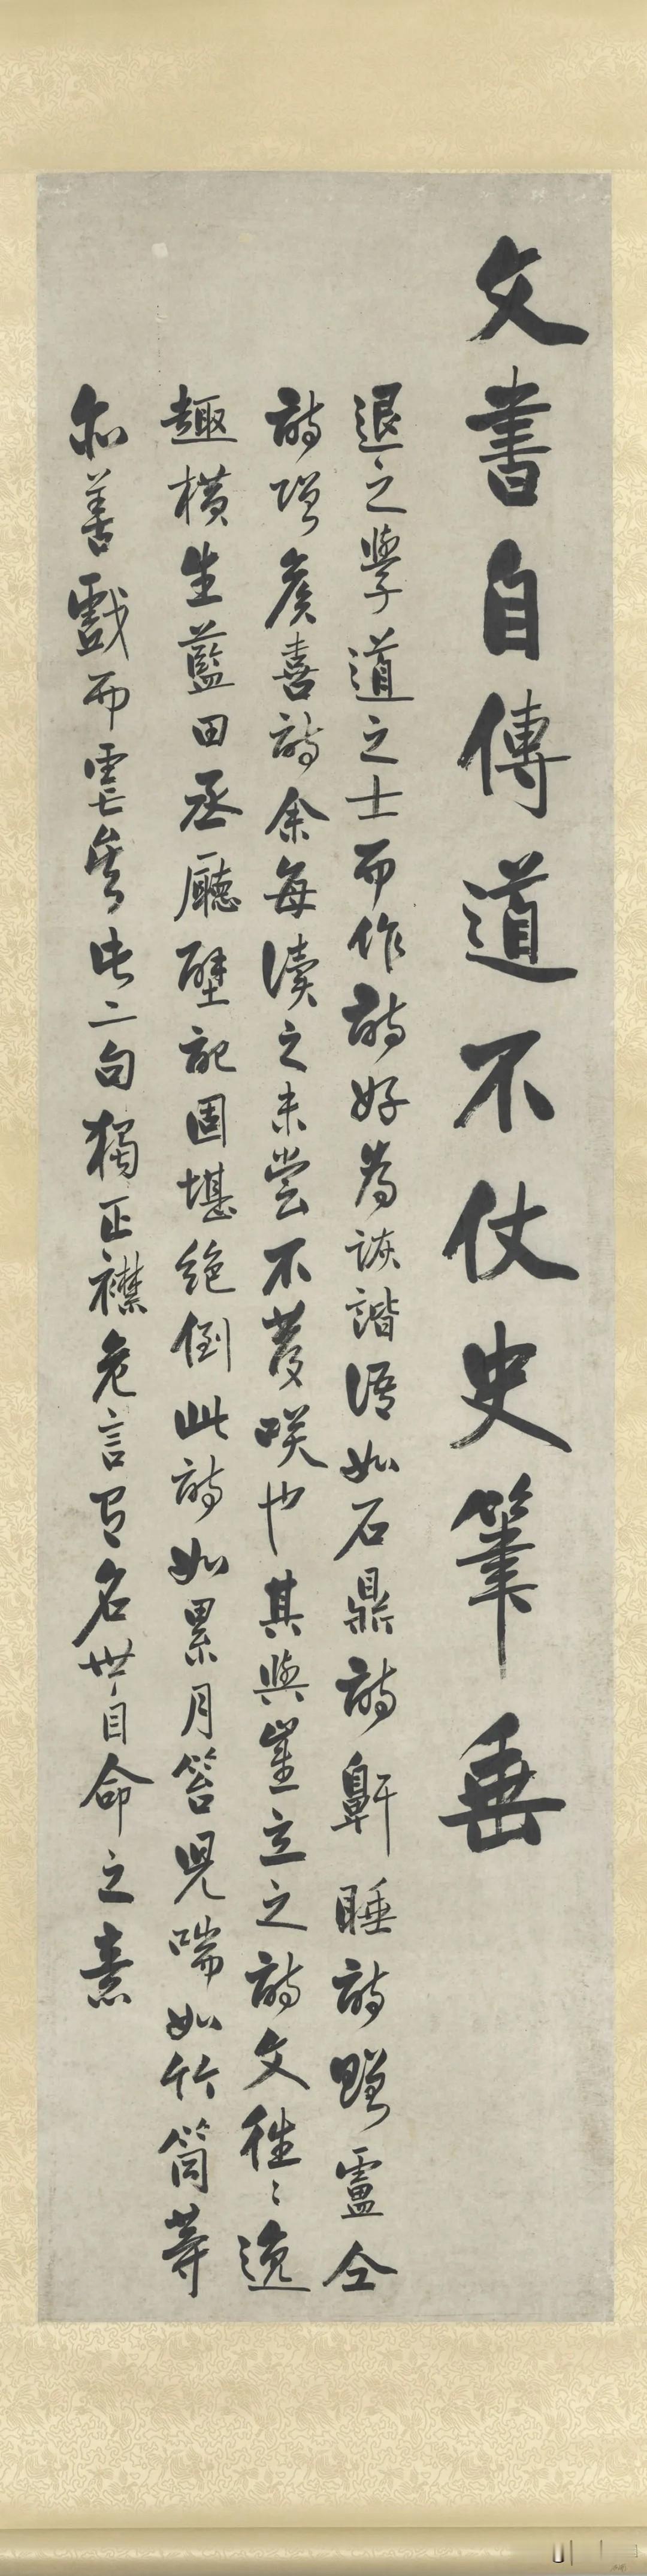 文書自傳道不仗史筆垂
退之學道之士而作詩好為詼諧語如石鼎詩鼾睡詩贈盧仝
詩贈侯喜詩余每讀之未嘗不發咲也其與崔立之詩文往〻逸
趣橫生藍田丞廳壁記固堪絕倒此詩如累月笞兒喘如竹筒等
亦善戲而虐矣此二句獨正襟危言有名世自命之意